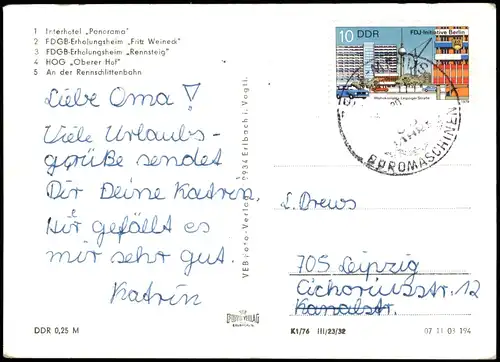 1 Interhotel „Panorama"
2 FDGB-Erholungsheim „Fritz Weineck"
3 FDGB-Erholungsheim „Rennsteig"
4 HOG „Oberer Hof"
5 An der Rennschlittenbahn
10 DDR FDJ-Initiative Berlin
Wohnkomplex Leipziger Straße
BÜROMASCHINEN
Liebe Oma!
Viele Urlaubs-
grüße sendet
Dir Deine Katrin.
Hir gefällt es
mir sehr gut.
Katrin
VEB Foto-Verlag 9934 Erlbach i. Vogtl.
L. Drews
705 Leipzig
Cichoriusstr. 12
Kanalstr.
DDR 0,25 M
K1/76 III/23/32
07 11 03 194